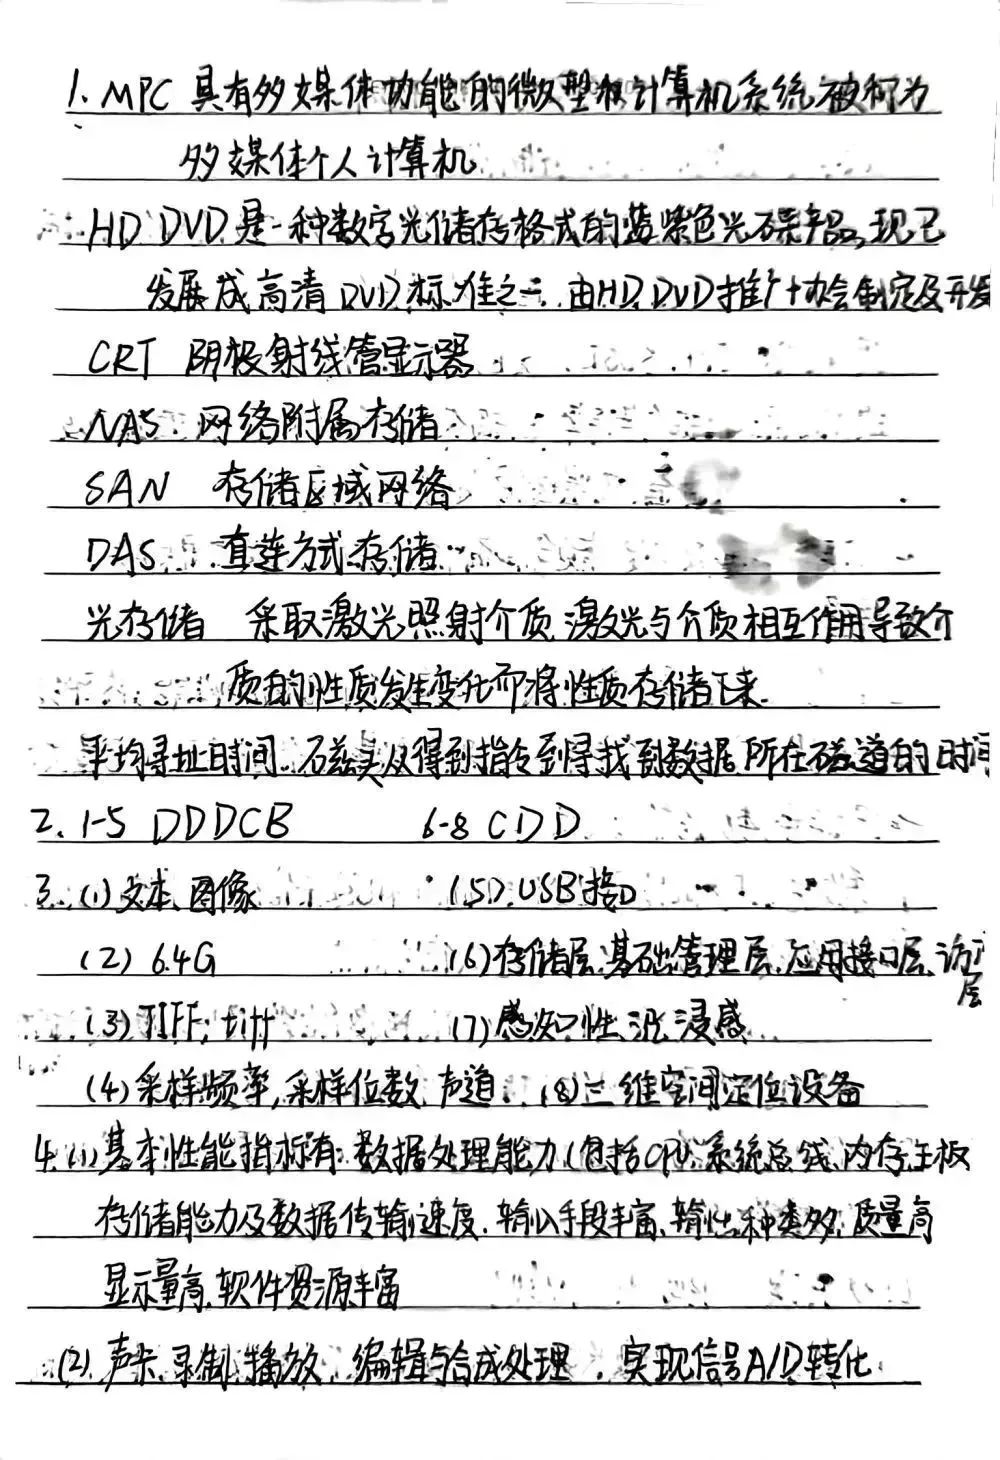 1. MPC 具有多媒体功能的微型机计算机系统被称为
多媒体个人计算机
HD DVD 是一种数字光储存格式的蓝紫色光碟产品,现已
发展成高清DVD标准之一,由HD DVD推广协会制定及开发
CRT 阴极射线管显示器
NAS 网络附属存储
SAN 存储区域网络
DAS 直连方式存储
光存储 采取激光照射介质,激光与介质相互作用导致介
质的性质发生变化而将性质存储下来.
平均寻址时间.磁头从得到指令到寻找到数据所在磁道的时间
2. 1-5 DDDCB 6-8 CDD
3. (1)文本、图像 (5).USB接口
(2) 6.4G (6)存储层、基础管理层、应用接口层、访问层
(3)TIFF; tiff (7)感知性、沉浸感
(4)采样频率,采样位数、声道. (8)三维空间定位设备
4.(1)基本性能指标有:数据处理能力(包括CPU、系统总线、内存、主板
存储能力及数据传输速度、输入手段丰富、输出种类多、质量高
显示量高、软件资源丰富
(2).声卡、录制、播放、编辑与合成处理,实现信号A/D转化